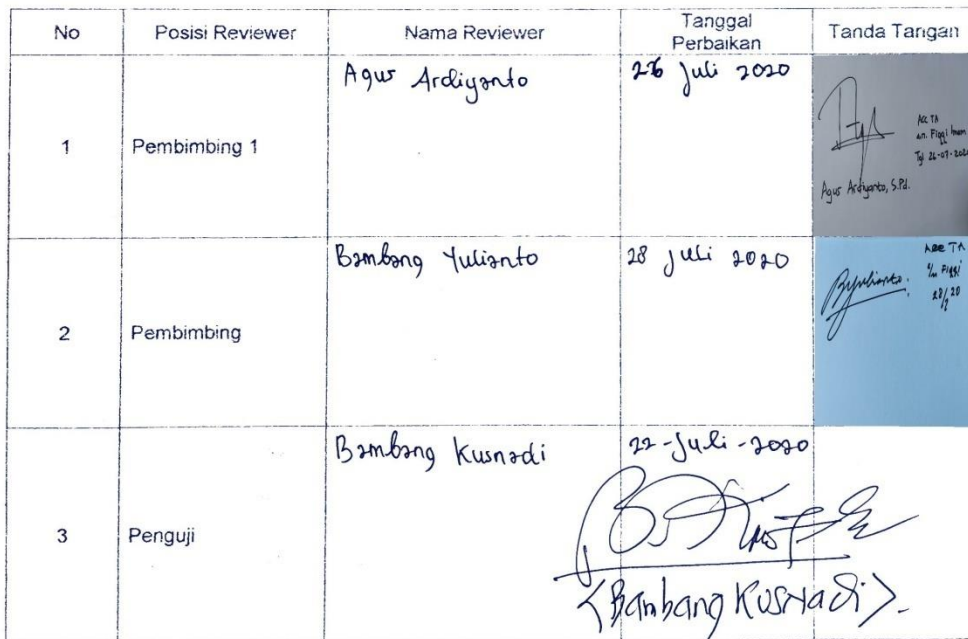 No Posisi Reviewer Nama Reviewer Tanggal Perbaikan Tanda Tangan
1 Pembimbing 1 Agus Ardiyanto 26 Juli 2020
Acc TA
an. Figgi Imam
Tgl 26-07-2020
Agus Ardiyanto, S.Pd.
2 Pembimbing Bambang Yulianto 28 Juli 2020
Acc TA
a/n Figgi
28/7 20
Byulianto.
3 Penguji Bambang Kusnadi 22-Juli-2020
<Bambang Kusnadi>.